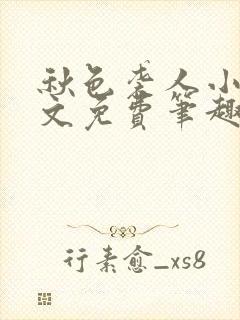 秋色袭人小
文免费笔趣
行素愈_xs8